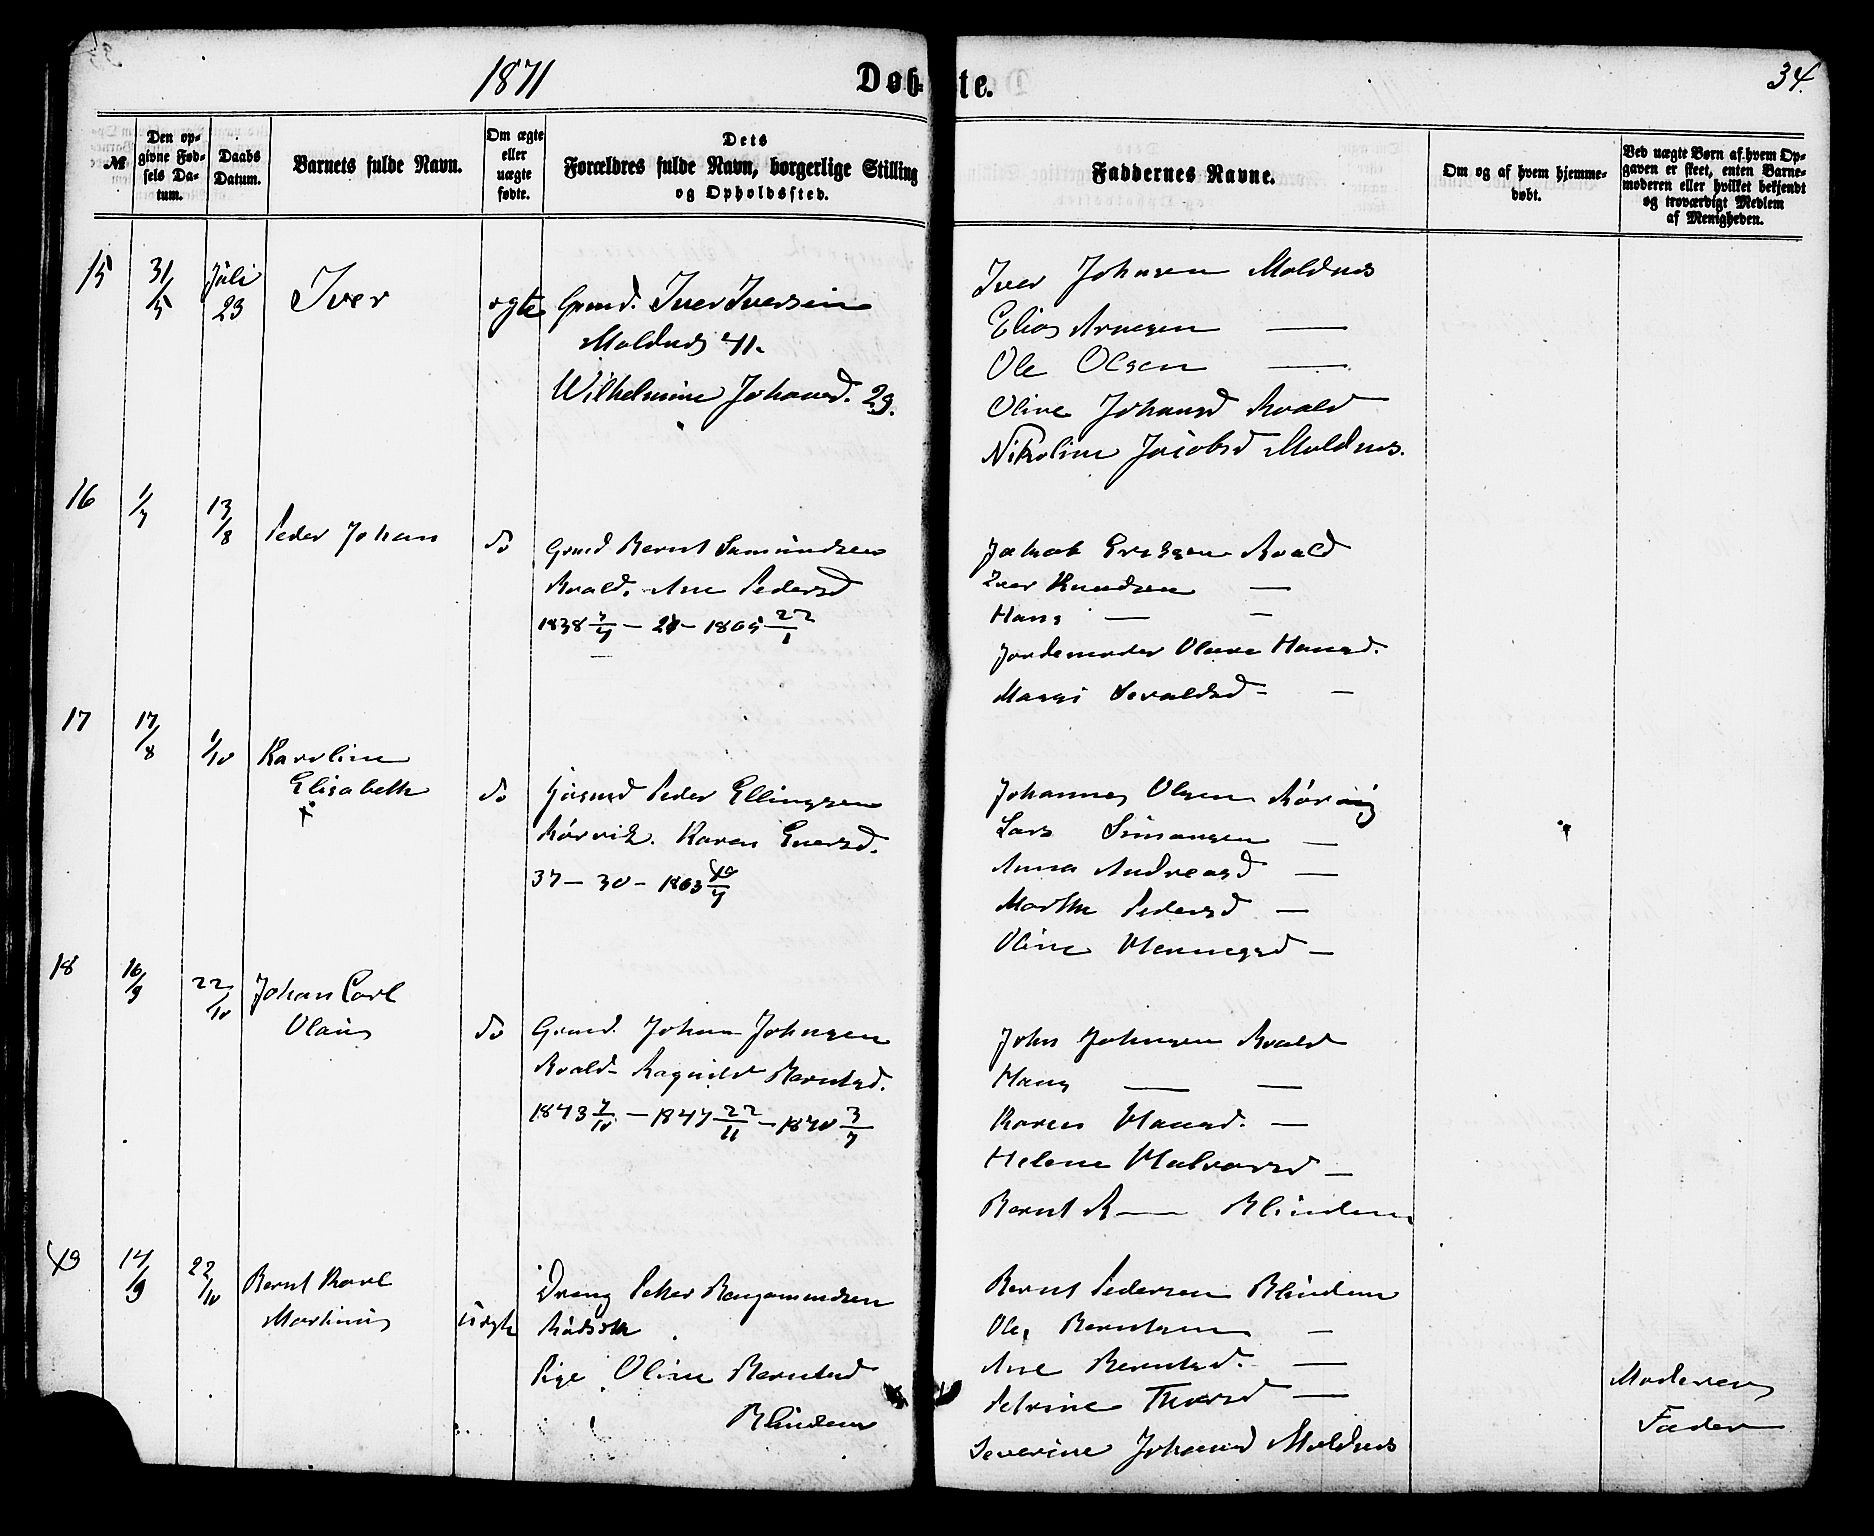 1871
Døb-
te.
34.
№
Den op-
givne Fød-
sels Da-
tum.
Daabs
Datum.
Barnets fulde Navn.
Om ægte
eller
uægte
fødte.
Dets
Forældres fulde Navn, borgerlige Stilling
og Opholdssted.
Faddernes Navne.
Om og af hvem hjemme-
døbt.
Ved uægte Børn af hvem Op-
gaven er skeet, enten Barne-
moderen eller hvilket bekjendt
og troværdigt Medlem
af Menigheden.
15
31/5
Juli 23
Iver
ægte
Gmd. Iver Iversen
Moldnes 41.
Wilhelmine Johansd. 29.
Iver Johnsen Moldnes
Elias Arnesen —
Ole Olsen —
Oline Johansd Roald
Nikoline Jacobsd Moldnes.
16
1/7
13/8
Peder Johan
do
Gmd Bernt Samundsen
Roald. Ane Pedersd
1838 — 1865 22/1
Jakob Eriksen Roald
Iver Knudsen —
Hans — —
Jordemoder Olave Hansd.
Massi Sevaldsd —
17
17/8
1/10
Karoline
Elisabeth
do
Peder Ellingsen
Rørvik. Karen Eversd.
37 — 30 — 1863
Johannes Olsen Rørvig
Lars Simonsen —
Anna Andreasd —
Marthe Pedersd —
Oline —
18
16/9
22/10
Johan Carl
Olaus
do
Gmd. Johan Johnsen
Roald — Ragnild Berntsd.
1843 7/10 — 1847 22/11 — 1870 3/7
John Johnsen Roald
Hans — —
Karen Hansd. —
Helene Halvorsd —
Bernt R — Blindem
19
14/9
22/10
Bernt Karl
Martinus
uægte
Dreng Peter Bengamindsen
Pige Oline Berntsd
Blindem
Bernt Pedersen Blindem
Ole Berntsen —
Ane Berntsd. —
Petrine Thorsd —
Severine Johansd Moldnes
Moderens
Fader